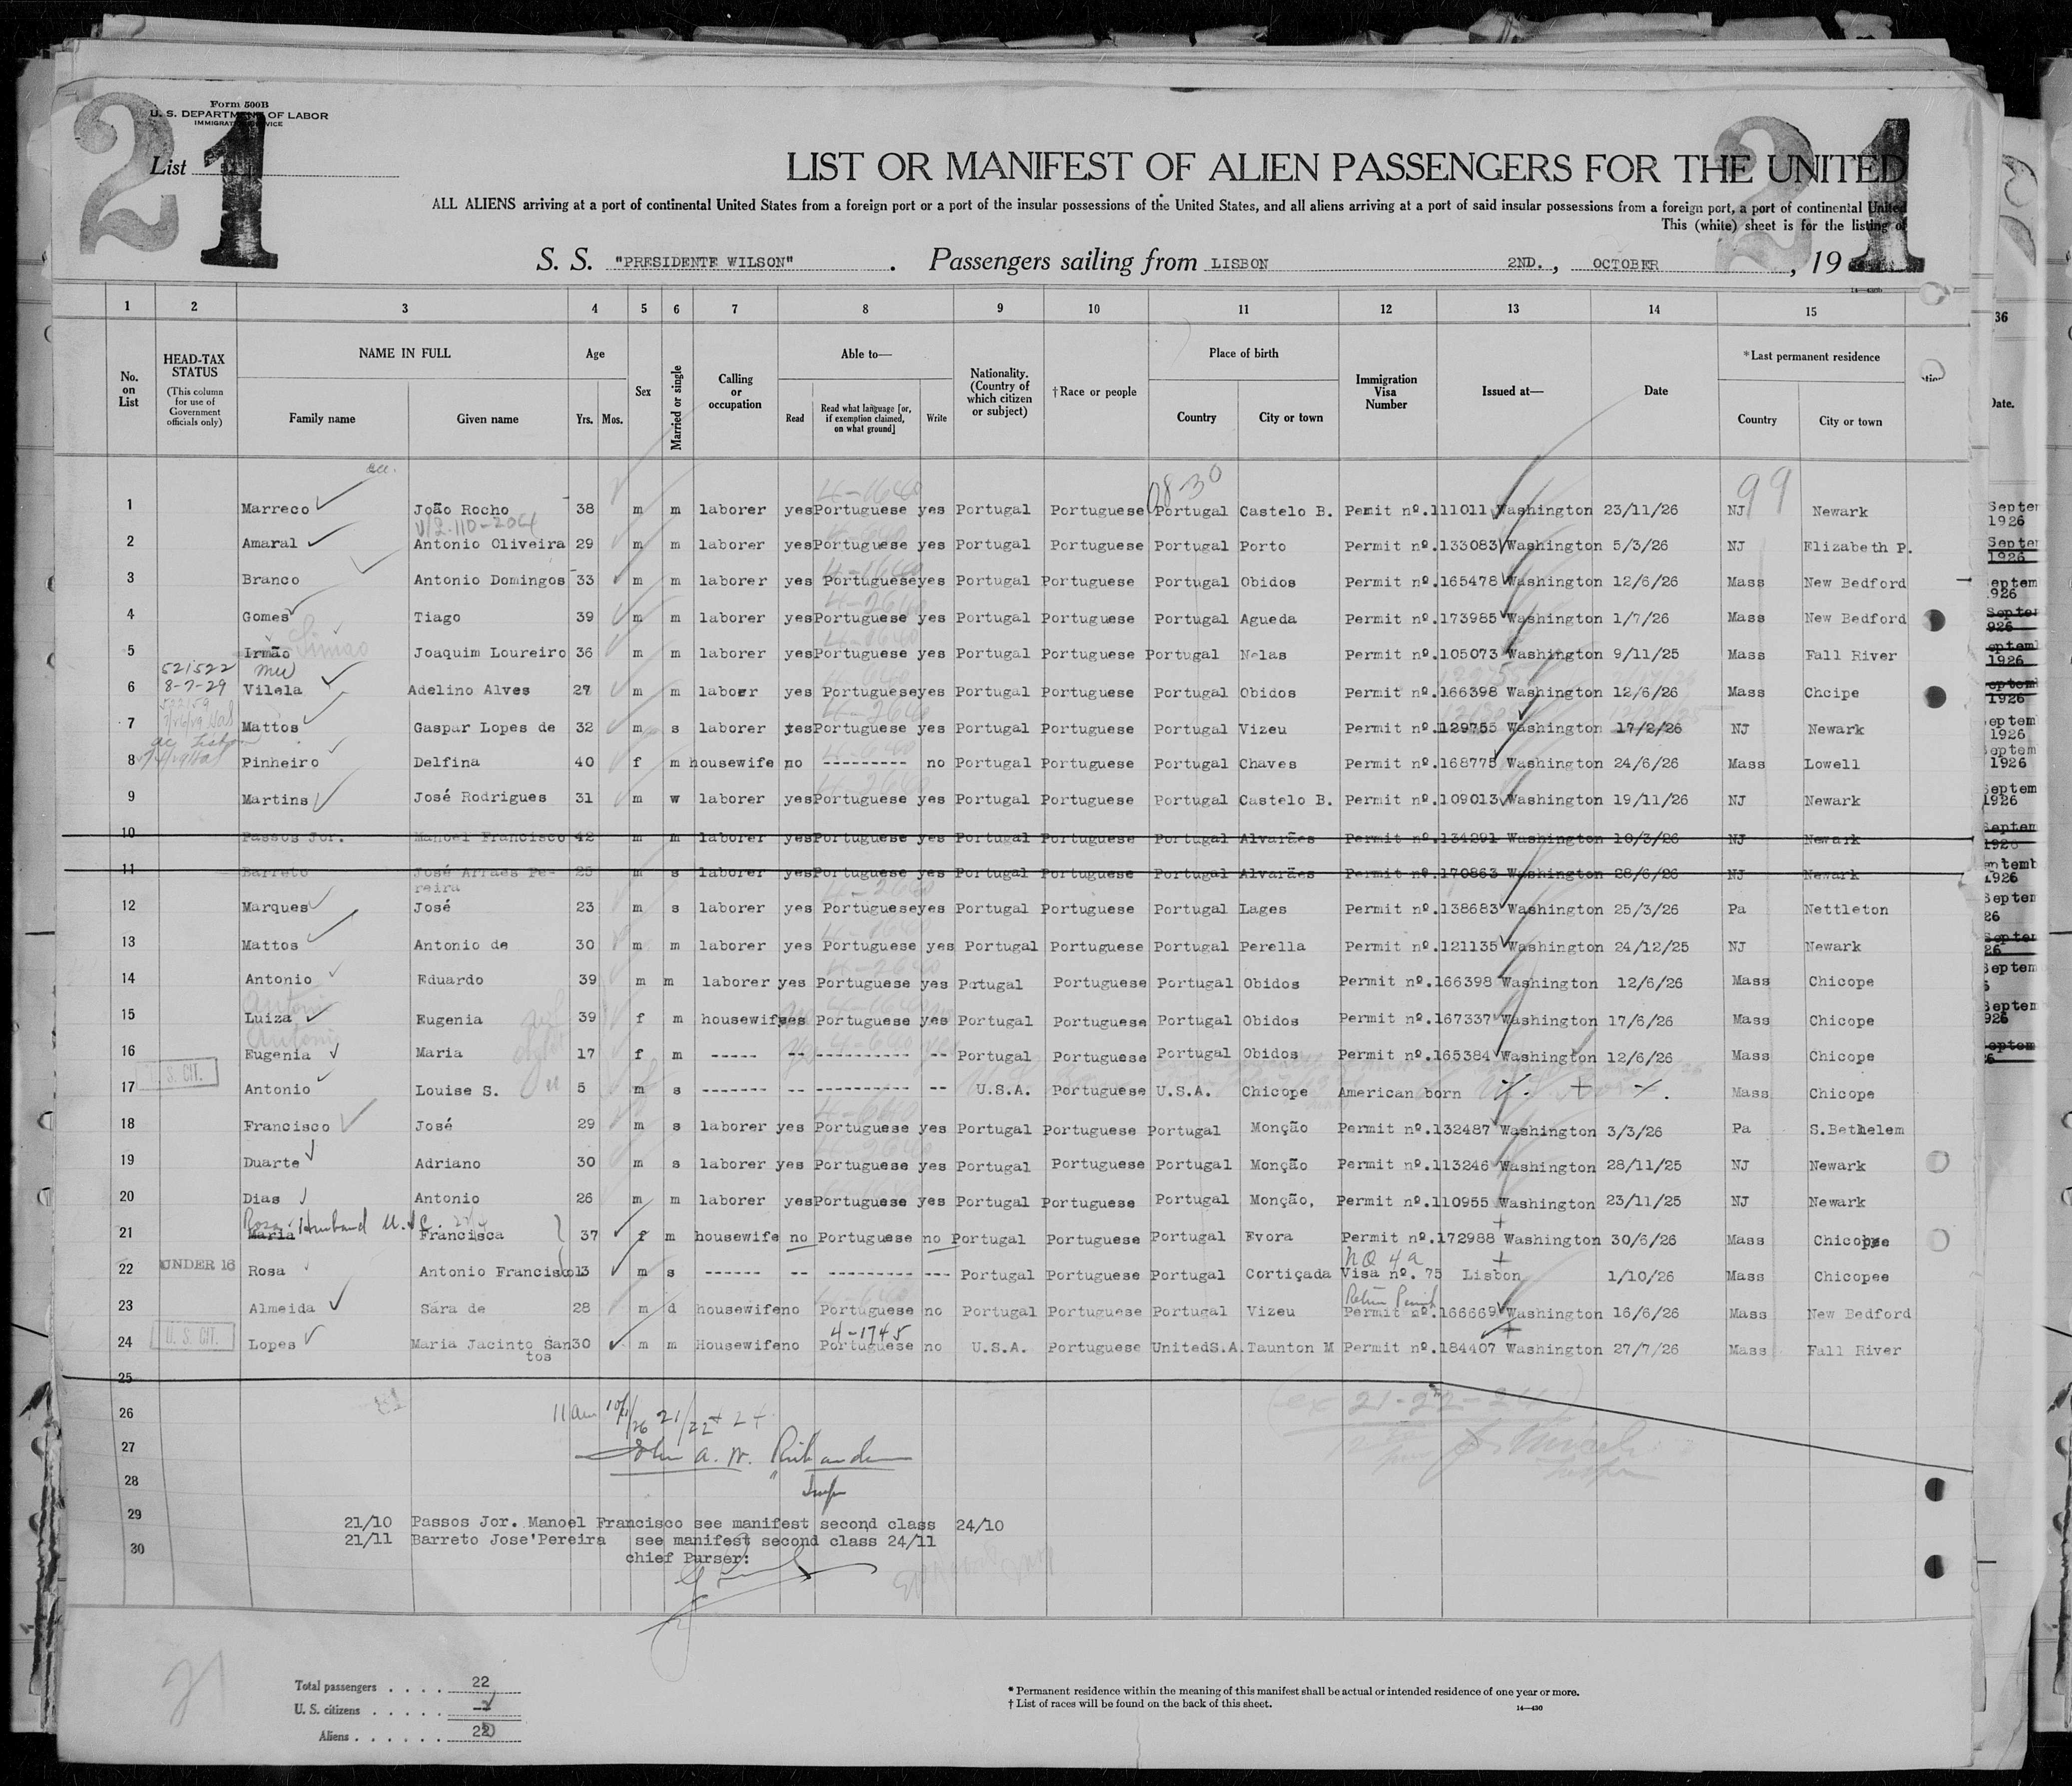 21
Form 500B
U. S. DEPARTMENT OF LABOR
IMMIGRATION SERVICE
List
21
LIST OR MANIFEST OF ALIEN PASSENGERS FOR THE UNITED
ALL ALIENS arriving at a port of continental United States from a foreign port or a port of the insular possessions of the United States, and all aliens arriving at a port of said insular possessions from a foreign port, a port of continental United
This (white) sheet is for the listing of
S. S. "PRESIDENTE WILSON". Passengers sailing from LISBON 2ND., OCTOBER, 19
1 2 3 4 5 6 7 8 9 10 11 12 13 14 15 36
No. on List
HEAD-TAX STATUS (This column for use of Government officials only)
NAME IN FULL
Family name Given name
Age
Yrs. Mos.
Sex
Married or single
Calling or occupation
Able to—
Read
Read what language [or, if exemption claimed, on what ground]
Write
Nationality. (Country of which citizen or subject)
†Race or people
Place of birth
Country City or town
Immigration Visa Number
Issued at—
Date
*Last permanent residence
Country City or town
Date.
0830 99
1 Marreco João Rocho 38 m m laborer yes Portuguese yes Portugal Portuguese Portugal Castelo B. Pemit nº.111011 Washington 23/11/26 NJ Newark
2 Amaral Antonio Oliveira 29 m m laborer yes Portuguese yes Portugal Portuguese Portugal Porto Permit nº.133083 Washington 5/3/26 NJ Elizabeth P.
3 Branco Antonio Domingos 33 m m laborer yes Portuguese yes Portugal Portuguese Portugal Obidos Permit nº.165478 Washington 12/6/26 Mass New Bedford
4 Gomes Tiago 39 m m laborer yes Portuguese yes Portugal Portuguese Portugal Agueda Permit nº.173985 Washington 1/7/26 Mass New Bedford
5 Irmão Simão Joaquim Loureiro 36 m m laborer yes Portuguese yes Portugal Portuguese Portugal Nelas Permit nº.105073 Washington 9/11/25 Mass Fall River
521522
8-7-29
6 Vilela Adelino Alves 27 m m laboer yes Portuguese yes Portugal Portuguese Portugal Obidos Permit nº.166398 Washington 12/6/26 Mass Chcipe
7 Mattos Gaspar Lopes de 32 m s laborer yes Portuguese yes Portugal Portuguese Portugal Vizeu Permit nº.129755 Washington 17/2/26 NJ Newark
8 Pinheiro Delfina 40 f m housewife no --------- no Portugal Portuguese Portugal Chaves Permit nº.168775 Washington 24/6/26 Mass Lowell
9 Martins José Rodrigues 31 m w laborer yes Portuguese yes Portugal Portuguese Portugal Castelo B. Permit nº.109013 Washington 19/11/26 NJ Newark
10 Passos Jor. Manoel Francisco 42 m m laborer yes Portuguese yes Portugal Portuguese Portugal Alvarães Permit nº.134291 Washington 10/3/26 NJ Newark
11 Barreto José Arraes Pereira 25 m s laborer yes Portuguese yes Portugal Portuguese Portugal Alvarães Permit nº.170863 Washington 28/6/26 NJ Newark
12 Marques José 23 m s laborer yes Portuguese yes Portugal Portuguese Portugal Lages Permit nº.138683 Washington 25/3/26 Pa Nettleton
13 Mattos Antonio de 30 m m laborer yes Portuguese yes Portugal Portuguese Portugal Perella Permit nº.121135 Washington 24/12/25 NJ Newark
14 Antonio Eduardo 39 m m laborer yes Portuguese yes Portugal Portuguese Portugal Obidos Permit nº.166398 Washington 12/6/26 Mass Chicope
15 Luiza Eugenia 39 f m housewife yes Portuguese yes Portugal Portuguese Portugal Obidos Permit nº.167337 Washington 17/6/26 Mass Chicope
16 Eugenia Maria 17 f m ----- -- ---------- -- Portugal Portuguese Portugal Obidos Permit nº.165384 Washington 12/6/26 Mass Chicope
17 U. S. CIT. Antonio Louise S. 5 m s ------- -- ---------- -- U.S.A. Portuguese U.S.A. Chicope American born Mass Chicope
18 Francisco José 29 m s laborer yes Portuguese yes Portugal Portuguese Portugal Monção Permit nº.132487 Washington 3/3/26 Pa S.Bethelem
19 Duarte Adriano 30 m s laborer yes Portuguese yes Portugal Portuguese Portugal Monção Permit nº.113246 Washington 28/11/25 NJ Newark
20 Dias Antonio 26 m m laborer yes Portuguese yes Portugal Portuguese Portugal Monção, Permit nº.110955 Washington 23/11/25 NJ Newark
Rosa Husband U.S.C.
21 Maria Francisca 37 f m housewife no Portuguese no Portugal Portuguese Portugal Evora Permit nº.172988 Washington 30/6/26 Mass Chicopee
NQ 4a
22 UNDER 16 Rosa Antonio Francisco 13 m s ------ -- --------- --- Portugal Portuguese Portugal Cortiçada Visa nº. 75 Lisbon 1/10/26 Mass Chicopee
Return Permit
23 Almeida Sára de 28 m d housewife no Portuguese no Portugal Portuguese Portugal Vizeu Permit nº.166669 Washington 16/6/26 Mass New Bedford
4-1745
24 U. S. CIT. Lopes Maria Jacinto Santos 30 m m Housewife no Portuguese no U.S.A. Portuguese UnitedS.A. Taunton M Permit nº.184407 Washington 27/7/26 Mass Fall River
25
26 (ex 21-22-24)
27 John A. W.
28
29 21/10 Passos Jor. Manoel Francisco see manifest second class 24/10
21/11 Barreto Jose'Pereira see manifest second class 24/11
30 chief Purser:
21
Total passengers . . . . 22
U. S. citizens . . . . . 2
Aliens . . . . . . 20
* Permanent residence within the meaning of this manifest shall be actual or intended residence of one year or more.
† List of races will be found on the back of this sheet.
14—430